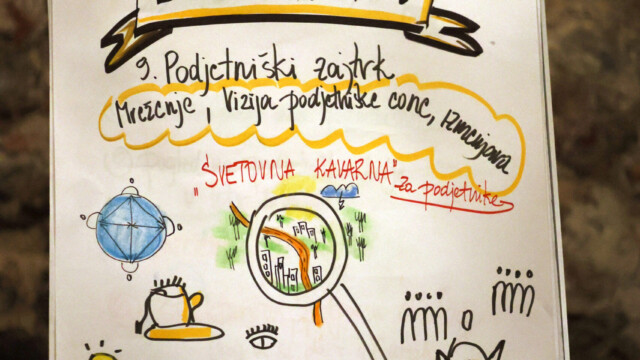 9. Podjetniški zajtrk
Mreženje, Vizija podjetniške cone, izmenjava
"SVETOVNA KAVARNA"
za podjetnike